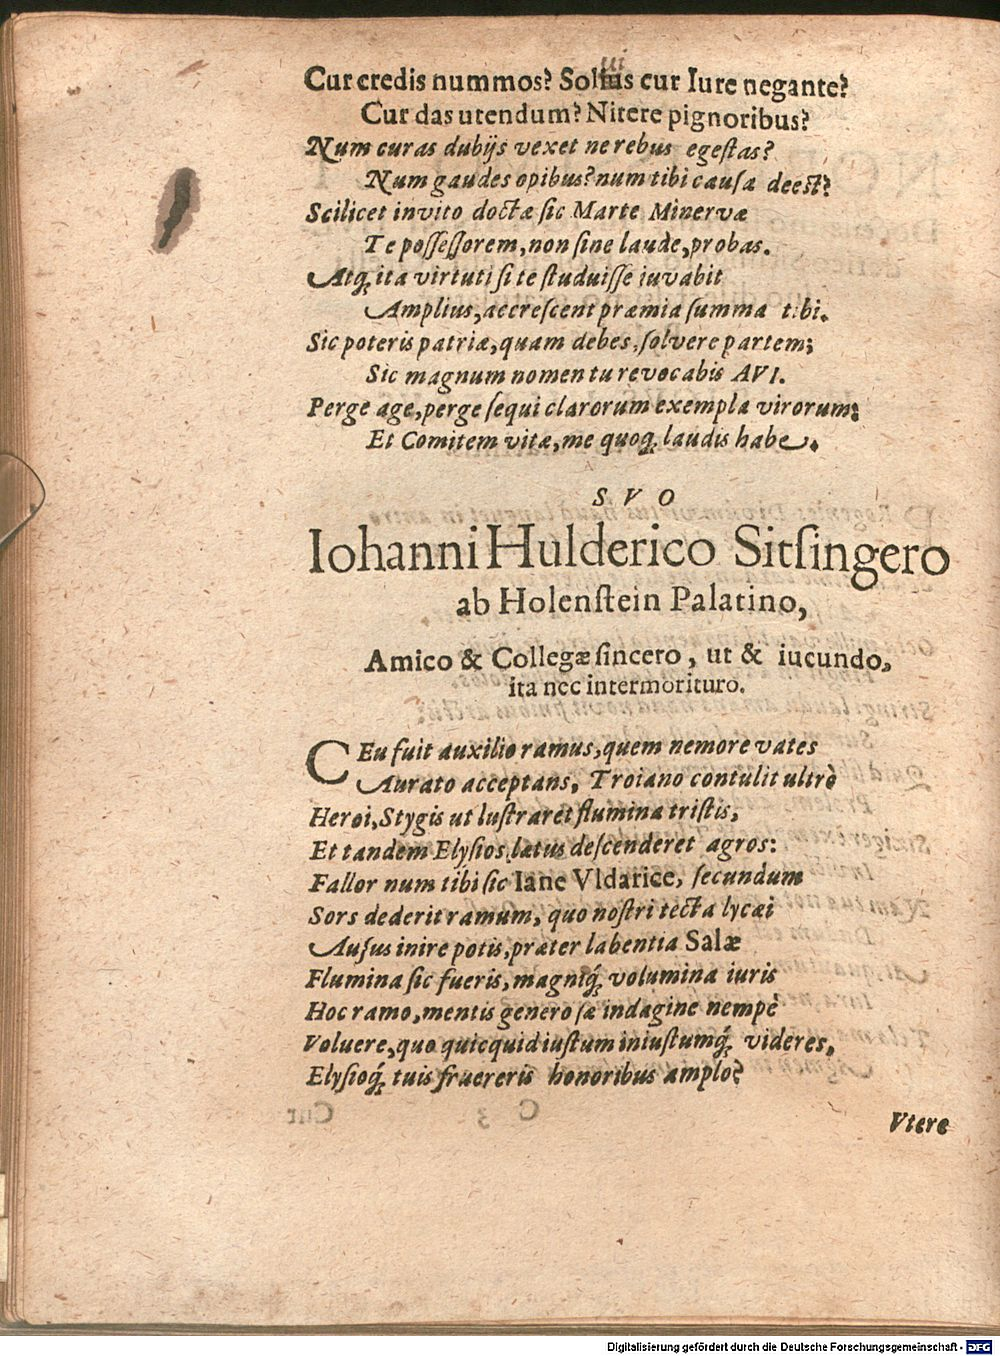 Cur credis nummos? Solius cur Iure negante?
Cur das utendum? Nitere pignoribus?
Num curas dubijs vexet ne rebus egeſtas?
Num gaudes opibus? num tibi cauſa deeſt?
Scilicet invito doctæ ſic Marte Minervæ
Te poſſeſſorem, non ſine laude, probas.
Atq́; ita virtuti ſi te ſtuduiſſe iuvabit
Amplius, accreſcent præmia ſumma tibi.
Sic poteris patriæ, quam debes, ſolvere partem;
Sic magnum nomen tu revocabis AVI.
Perge age, perge ſequi clarorum exempla virorum;
Et Comitem vitæ, me quoq́; laudis habe.
SVO
Iohanni Hulderico Sitſingero
ab Holenſtein Palatino,
Amico & Collegæ ſincero, ut & iucundo,
ita nec intermorituro.
CEu fuit auxilio ramus, quem nemore vates
Aurato acceptans, Troiano contulit ultrò
Heroi, Stygis ut luſtraret flumina triſtis,
Et tandem Elyſios lætus deſcenderet agros:
Fallor num tibi ſic Iane Vldarice, ſecundum
Sors dederit ramum, quo noſtri tecta lycæi
Auſus inire potis, præter labentia Salæ
Flumina ſic fueris, magniq́; volumina iuris
Hoc ramo, mentis generoſæ indagine nempè
Voluere, quo quicquid iuſtum iniuſtumq́; videres,
Elyſioq́; tuis fruereris honoribus amplo?
Vtere
Digitalisierung gefördert durch die Deutsche Forschungsgemeinschaft - DFG